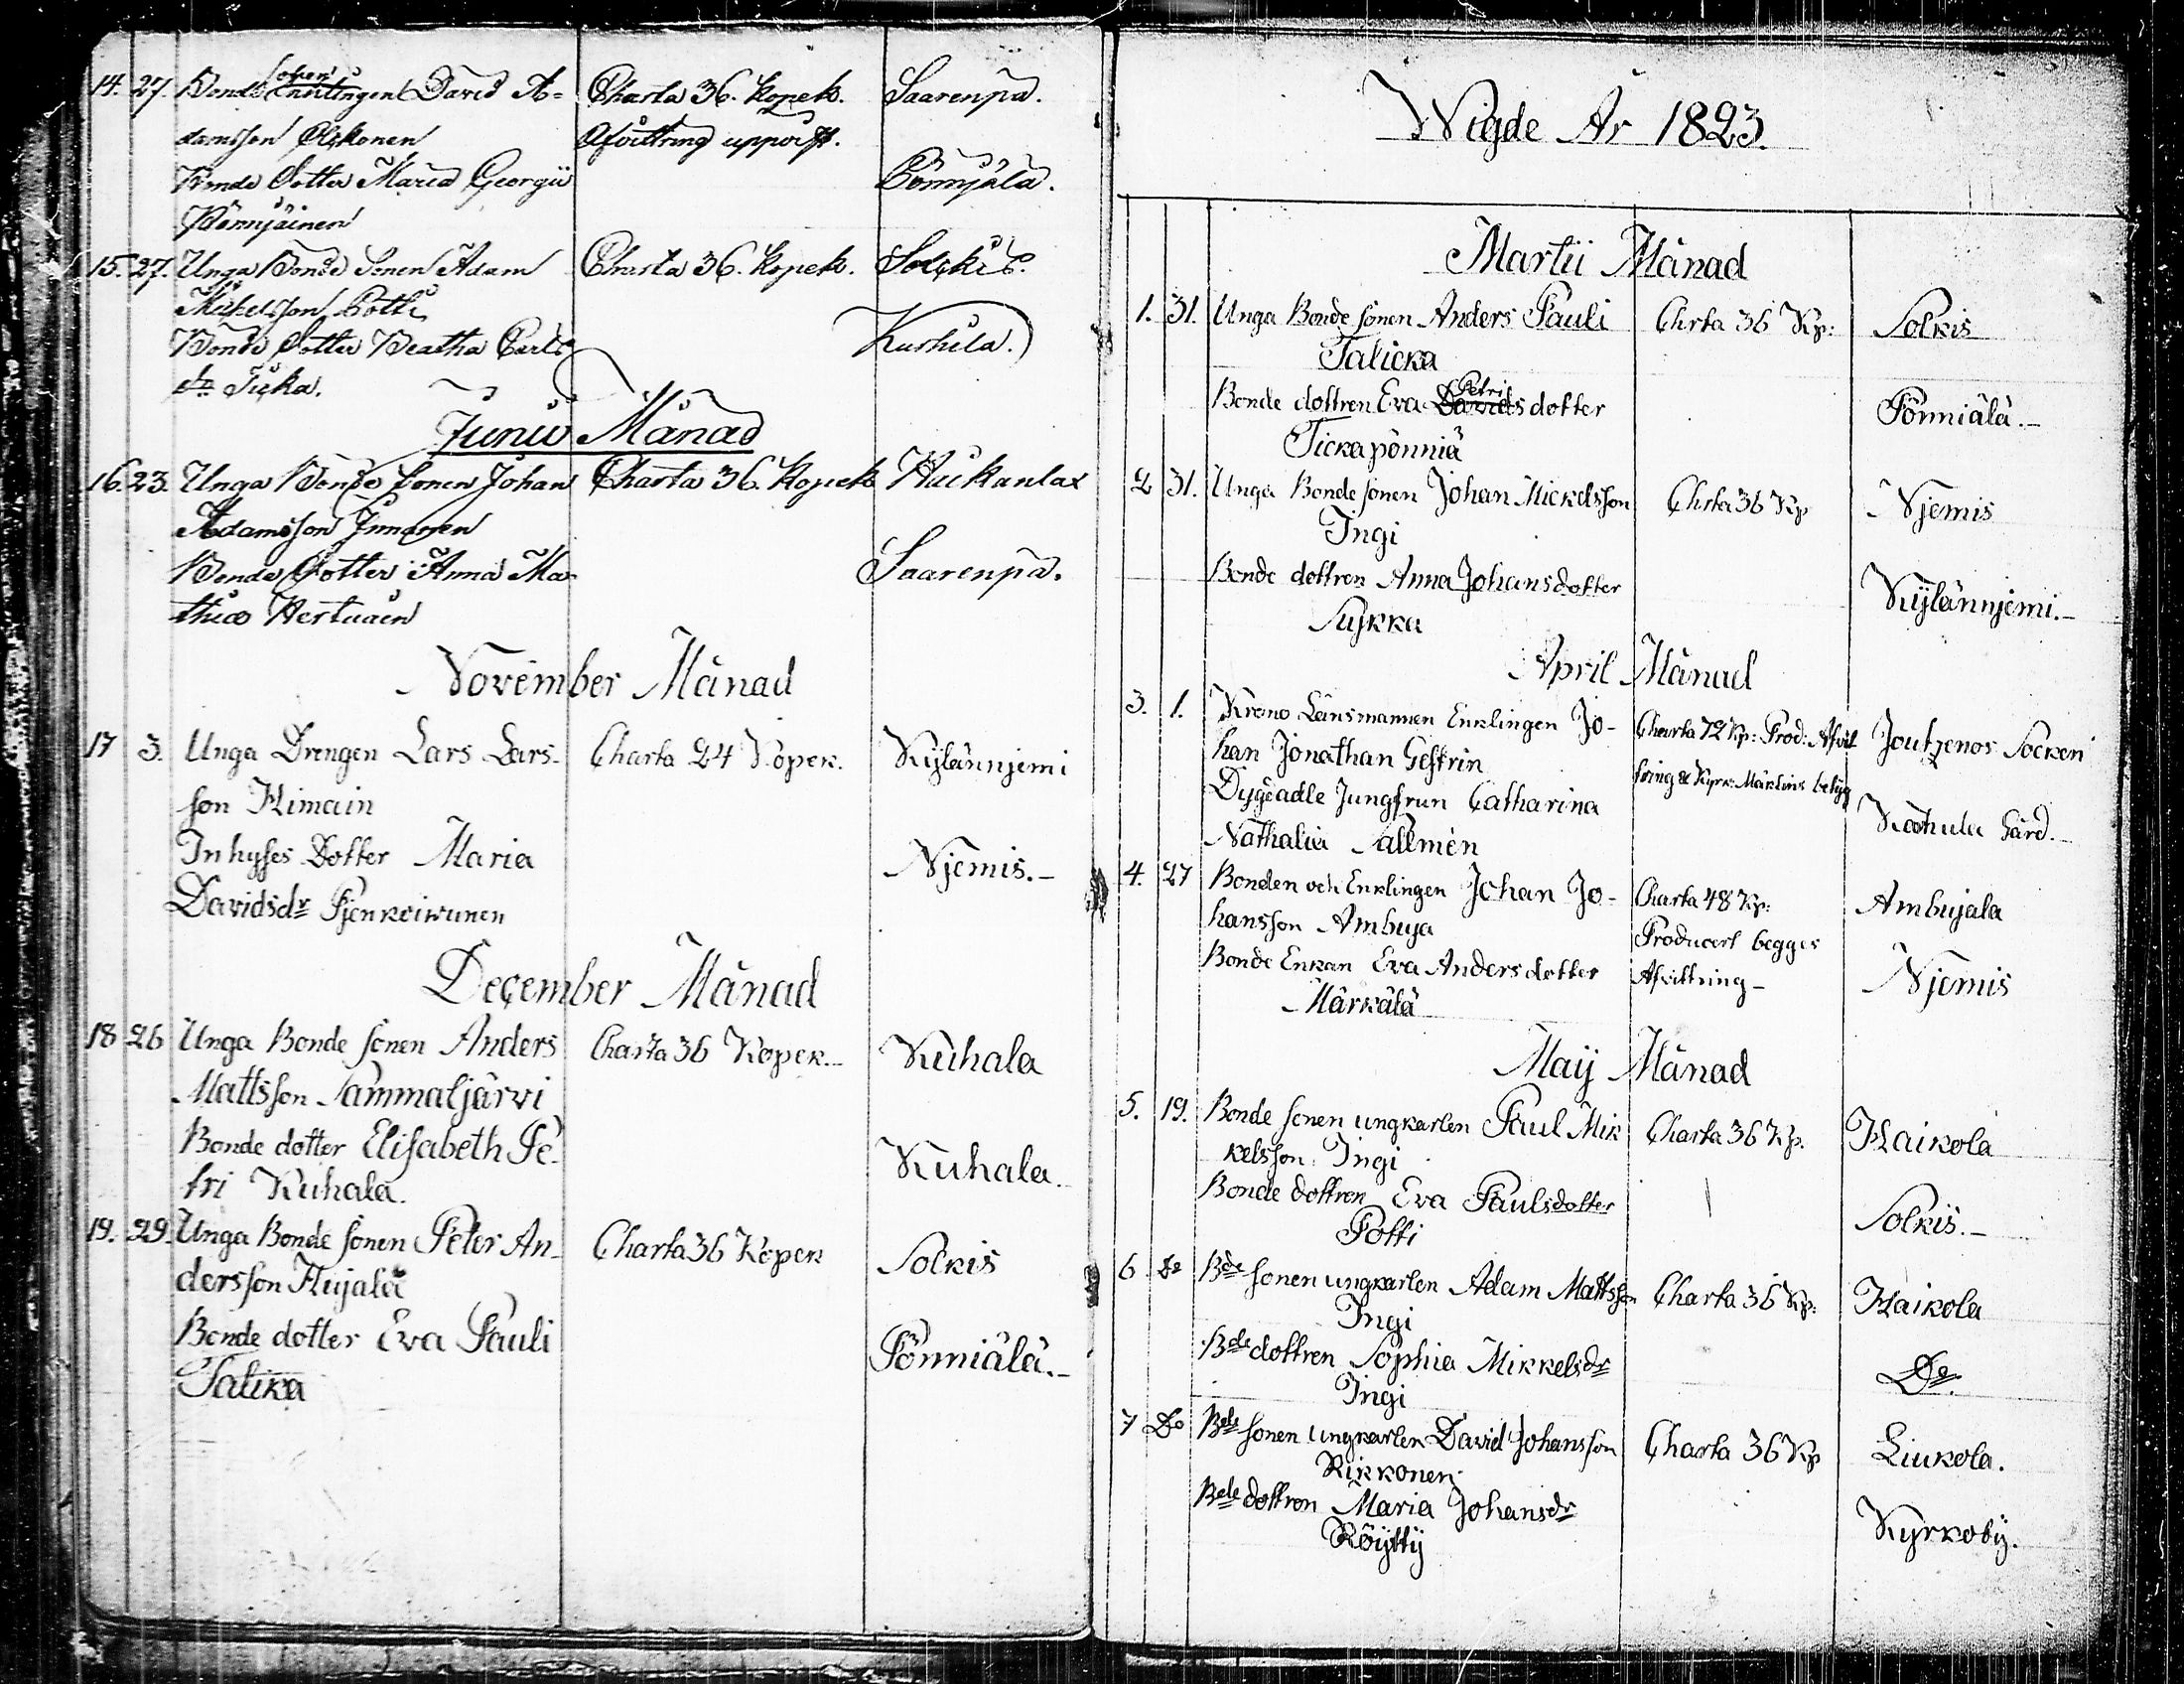 14. 27. Bonde sonen Enklingen David A- Charta 36. Kopek. Saarenpä.
damsson Afvittring uppvist.
Bonde Dotter Maria Georgii Pönnjälä.
Pönnjäinen
15. 27. Unga Bonde Sonen Adam Charta 36. Kopek. Solkis.
Michelsson Potti
Bonde Dotter Beatha Carls Kurhila.
dr Ticka.
Junii Månad
16. 23. Unga Bonde Sonen Johan Charta 36. Kopek Haikanlax
Adamsson Innanen
Bonde Dotter Anna Ma- Saarenpä.
thiæ Hertuain
November Månad
17 3. Unga Drengen Lars Lars- Charta 24 Kopek. Kylännjemi
son Himain
Inhyses Dotter Maria Njemis.-
Davidsdr
December Månad
18 26 Unga Bonde sonen Anders Charta 36 Kopek.- Kuhala
Mattsson Sammaljärvi
Bonde dotter Elisabeth Pe- Kuhala.
tri Kuhala.
19. 29. Unga Bonde sonen Peter An- Charta 36 Kopek Solkis
dersson Hujala
Bonde dotter Eva Pauli Pönniälä.-
Talika
Wigde År 1823.
Martii Månad
1. 31. Unga Bonde sonen Anders Pauli Chrta 36 Kp: Solkis
Talicka
Bonde dottren Eva Davids Petri dotter Pönniälä.-
Tickapönniä
2 31. Unga Bonde sonen Johan Mickelsson Chrta 36 Kp Njemis
Ingi
Bonde dottren Anna Johansdotter Kylännjemi.-
Sykka
April Månad
3. 1. Krono Länsmannen Enklingen Jo- Charta 72 Kp: Prod: Afvit Joutzenos Socken
han Jonathan Gestrin tring & Kyrk: Märkins betyg
Dygdädle Jungfrun Catharina Kathula Gård.-
Nathalia Sallmén
4. 27 Bonden och Enklingen Johan Jo- Charta 48 Kp: Ambujala
hansson Ambuja Producert begges
Bonde Enkan Eva Andersdotter Afvittring- Njemis
Märkälä
Maij Månad
5. 19. Bonde sonen ungkarlen Paul Mik Charta 36 Kp. Haikola
kelsson Ingi
Bonde dottren Eva Paulsdotter Solkis.-
Potti
6 Do Bde sonen ungkarlen Adam Mattsson Charta 36 Kp: Haikola
Ingi
Bde dottren Sophia Mikkelsdr Do
Ingi
7 Do Bde sonen ungkarlen David Johansson Charta 36 Kp Liukola.
Rikkonen
Bde dottren Maria Johansdr Kyrkoby.
Röytty